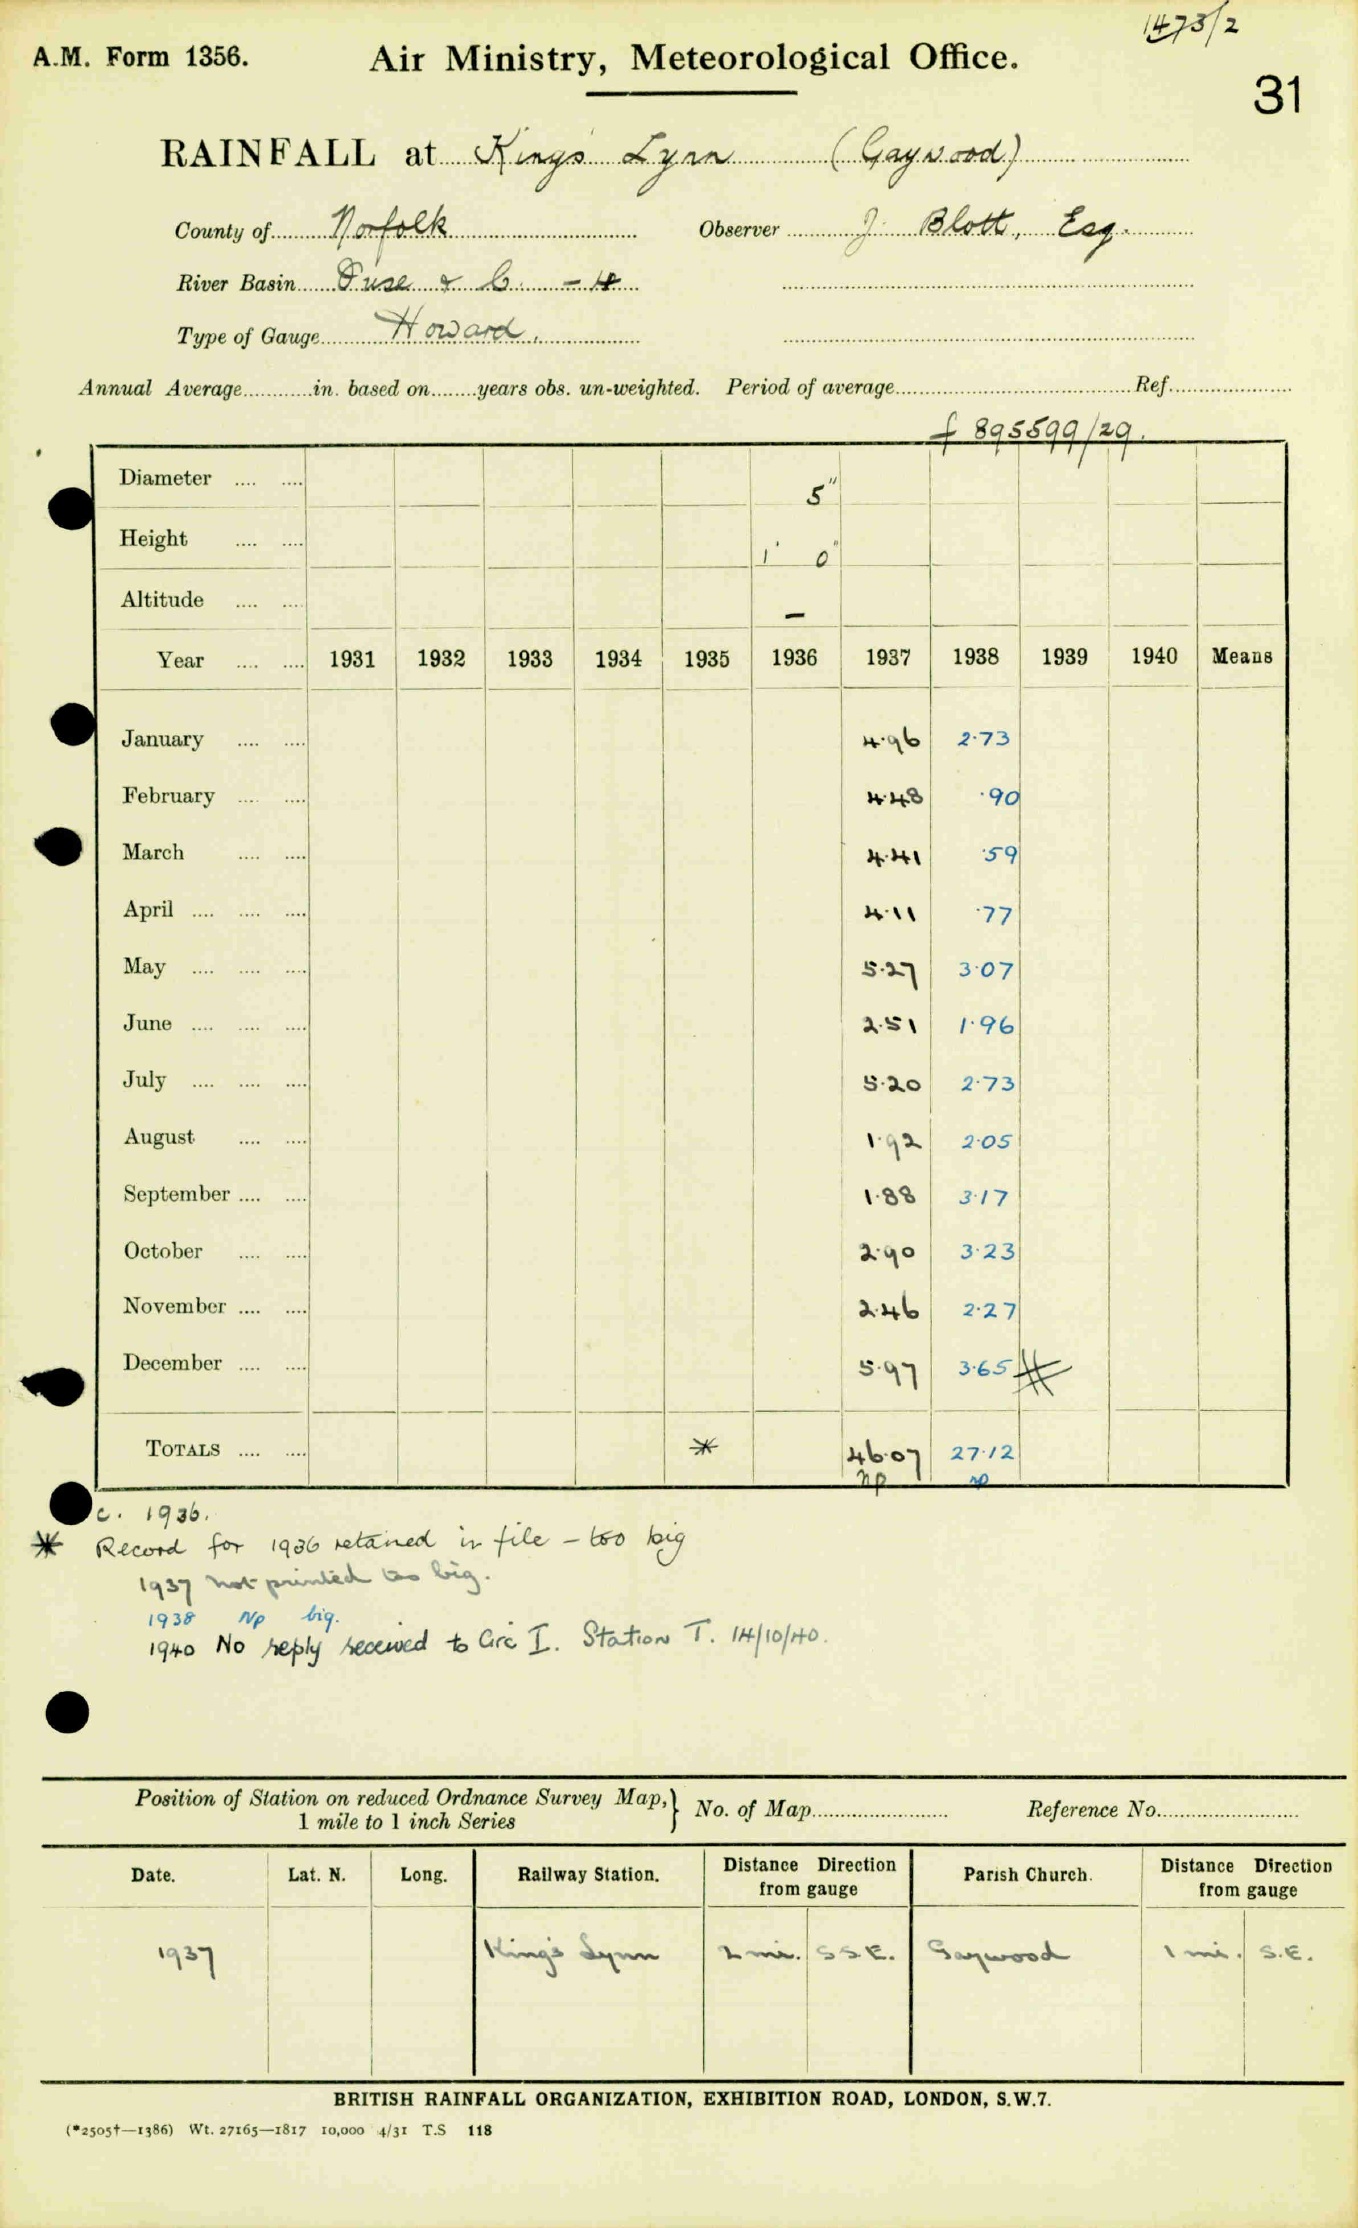 1473/2
A.M. Form 1356. Air Ministry, Meteorological Office.
31
RAINFALL at King's Lynn (Gaywood)
County of Norfolk Observer J. Blott, Esq.
River Basin Ouse & C. - 4
Type of Gauge Howard.
Annual Average in. based on years obs. un-weighted. Period of average Ref.
f 895599/29.
Diameter 5"
Height 1' 0"
Altitude –
Year 1931 1932 1933 1934 1935 1936 1937 1938 1939 1940 Means
January 4.96 2.73
February 4.48 .90
March 4.41 .59
April 4.11 .77
May 5.27 3.07
June 2.51 1.96
July 5.20 2.73
August 1.92 2.05
September 1.88 3.17
October 2.90 3.23
November 2.46 2.27
December 5.97 3.65
TOTALS * 46.07 27.12
np np
c. 1936.
* Record for 1936 retained in file – too big
1937 not printed too big.
1938 Np big.
1940 No reply received to Circ I. Station T. 14/10/40.
Position of Station on reduced Ordnance Survey Map, } No. of Map Reference No.
1 mile to 1 inch Series
Date. Lat. N. Long. Railway Station. Distance Direction from gauge Parish Church. Distance Direction from gauge
1937 King's Lynn 2 mi. S S.E. Gaywood 1 mi. S.E.
BRITISH RAINFALL ORGANIZATION, EXHIBITION ROAD, LONDON, S.W.7.
(*2505†—1386) Wt. 27165—1817 10,000 4/31 T.S 118